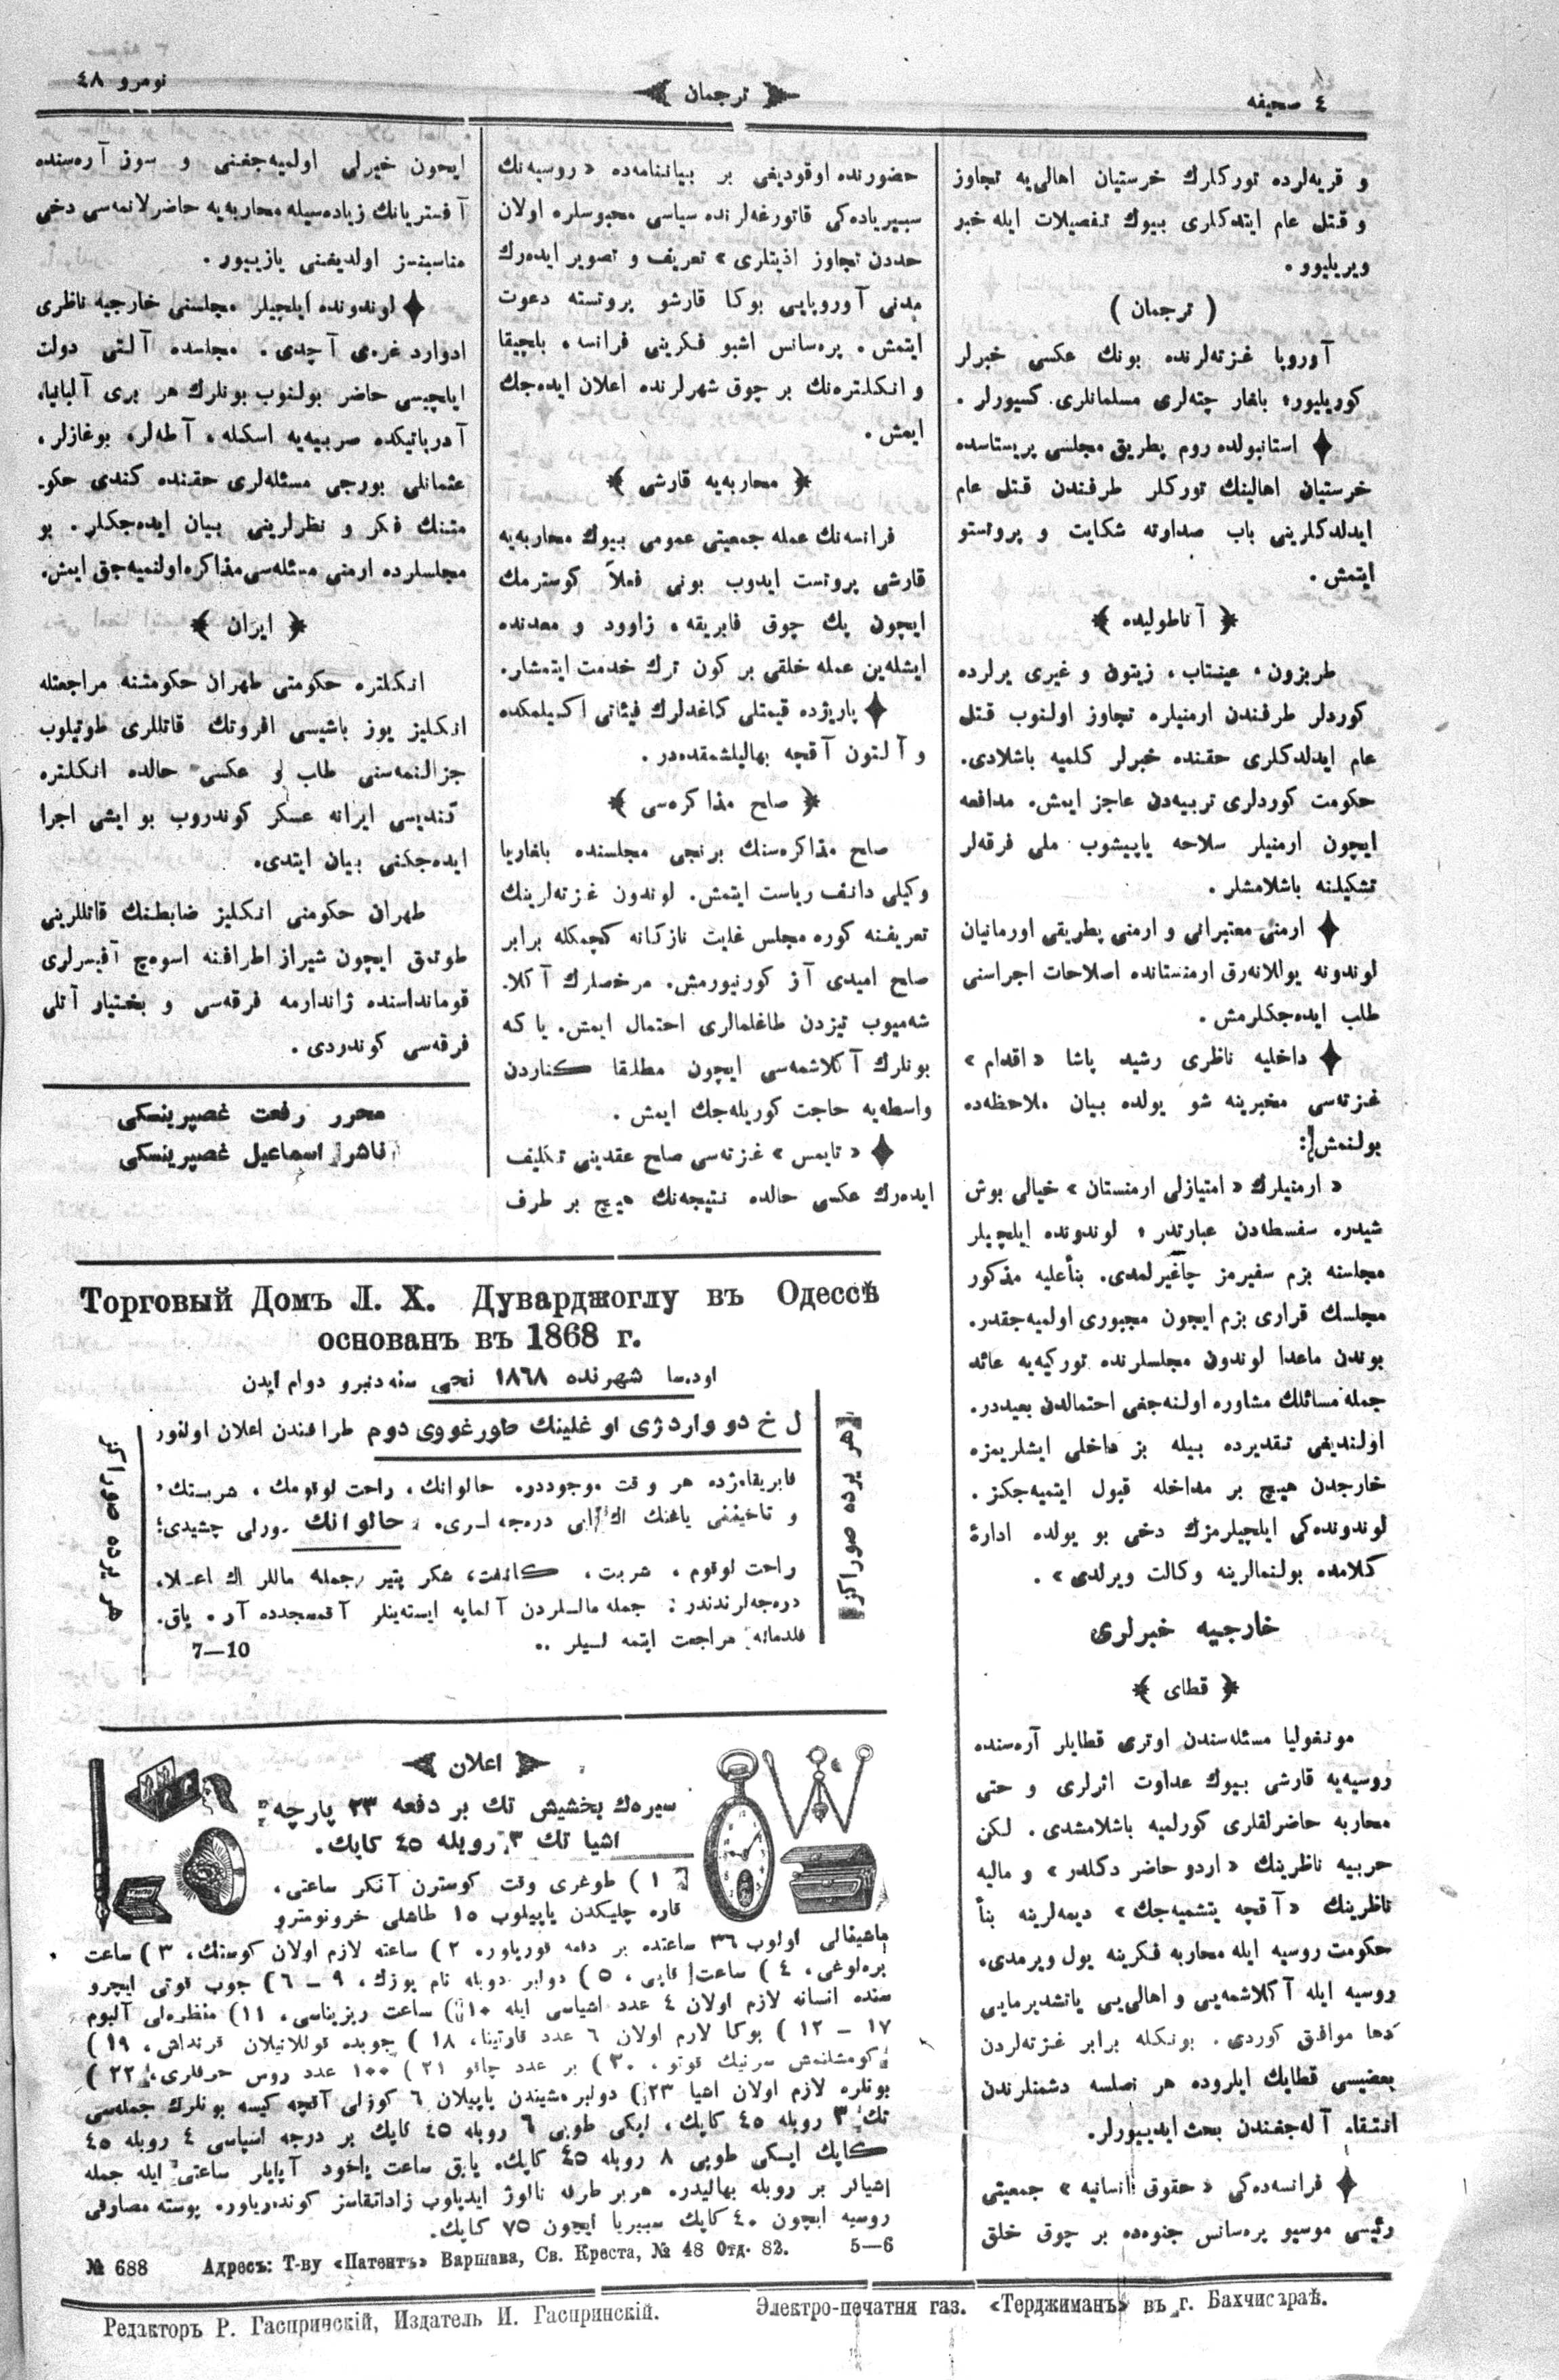 ٤ صحيفه
ترجمان
نومرو ٤٨
و قريه‌لرده توركلرك خرستيان اهالى‌يه تجاوز
و قتل عام ايتدكلرى بيوك تفصيلات ايله خبر
ويريليور.
( ترجمان )
آوروپا غزته‌لرنده بونك عكسى خبرلر
كوريليور؛ بلغار چته‌لرى مسلمانلرى كسيورلر.
استانبولده روم پطريق مجلسى پريستاسده
خرستيان اهالينك توركلر طرفندن قتل عام
ايدلدكلرينى باب صداوته شكايت و پروتستو
ايتمش.
آناطوليده
طربزون، عينتاب، زيتون و غيرى يرلرده
كوردلر طرفندن ارمنيلره تجاوز اولنوب قتل
عام ايدلدكلرى حقنده خبرلر كلميه باشلادى.
حكومت كوردلرى تربيه‌دن عاجز ايمش. مدافعه
ايچون ارمنيلر سلاحه ياپيشوب ملى فرقه‌لر
تشكيلنه باشلامشلر.
ارمنى معتبرانى و ارمنى پطريقى اورمانيان
لوندونه يوللانه‌رق ارمنستانده اصلاحات اجراسنى
طلب ايده‌جكلرمش.
داخليه ناظرى رشيد پاشا «اقدام»
غزته‌سى مخبرينه شو يولده بيان ملاحظه‌ده
بولنمش:
«ارمنيلرك «امتيازلى ارمنستان» خيالى بوش
شيدر. سفسطه‌دن عبارتدر؛ لوندونده ايلچيلر
مجلسنه بزم سفيرمز چاغيرلمدى. بنأعليه مذكور
مجلسك قرارى بزم ايچون مجبورى اولميه‌جقدر.
بوندن ماعدا لوندون مجلسلرنده توركيه‌يه عائد
جمله مسائلك مشاوره اولنه‌جغى احتمالدن بعيددر.
اولنديغى تقديرده بيله بز داخلى ايشلريمزه
خارجدن هيچ بر مداخله قبول ايتميه‌جكز.
لوندونده‌كى ايلچيلرمزك دخى بو يولده ادارۀ
كلامده بولنمالرينه وكالت ويرلدى».
خارجيه خبرلرى
قطاى
مونغوليا مسئله‌سندن اوترى قطايلر آره‌سنده
روسيه‌يه قارشى بيوك عداوت اثرلرى و حتى
محاربه حاضرلقلرى كورلميه باشلامشدى. لكن
حربيه ناظرينك «اردو حاضر دكلدر» و ماليه
ناظرينك «آقچه يتشميه‌جك» ديمه‌لرينه بنأ
حكومت روسيه ايله محاربه فكرينه يول ويرمدى،
روسيه ايله آكلاشمه‌يى و اهالى‌يى ياتشديرمايى
دها موافق كوردى. بونكله برابر غزته‌لردن
بعضيسى قطايك ايلروده هر نصلسه دشمنلرندن
انتقام آله‌جغندن بحث ايدييورلر.
فرانسه‌ده‌كى «حقوق انسانيه» جمعيتى
رئيسى موسيو پره‌سانس جنوه‌ده بر چوق خلق
حضورنده اوقوديغى بر بياننامه‌ده «روسيه‌نك
سيبرياده‌كى قاتورغه‌لرنده سياسى محبوسلره اولان
حددن تجاوز اذيتلرى» تعريف و تصوير ايده‌رك
مدنى آوروپايى بوكا قارشو پروتسته دعوت
ايتمش. پره‌سانس اشبو فكرينى فرانسه، بلچيقا
و انكلتره‌نك بر چوق شهرلرنده اعلان ايده‌جك
ايمش.
محاربه‌يه قارشى
فرانسه‌نك عمله جمعيتى عمومى بيوك محاربه‌يه
قارشى پروتست ايدوب بونى فعلاً كوسترمك
ايچون پك چوق فابريقه، زاوود و معدنده
ايشله‌ين عمله خلقى بر كون ترك خدمت ايتمشلر.
پاريژده قيمتلى كاغدلرك فيئاتى اكسيلمكده
و آلتون آقچه بهاليلشمقده‌در.
صلح مذاكره‌سى
صلح مذاكره‌سنك برنجى مجلسنده بلغاريا
وكيلى دانف رياست ايتمش. لوندون غزته‌لرينك
تعريفنه كوره مجلس غايت نازكانه كچمكله برابر
صلح اميدى آز كورنيورمش. مرخصلرك آكلا-
شه‌ميوب تيزدن طاغلمالرى احتمال ايمش. ياكه
بونلرك آكلاشمه‌سى ايچون مطلقا كناردن
واسطه‌يه حاجت كوريله‌جك ايمش.
«تايمس» غزته‌سى صلح عقدينى تكليف
ايده‌رك عكسى حالده نتيجه‌نك هيچ بر طرف
ايچون خيرلى اولميه‌جغنى و سوز آره‌سنده
آفستريانك زياده‌سيله محاربه‌يه حاضرلانمه‌سى دخى
مناسبتسز اولديغنى يازييور.
لوندونده ايلچيلر مجلسنى خارجيه ناظرى
ادوارد غره‌ى آچدى. مجلسده آلتى دولت
ايلچيسى حاضر بولنوب بونلرك هر برى آلبانيا،
آدرياتيكده صربيه‌يه اسكله، آطه‌لر، بوغازلر،
عثمانلى بورجى مسئله‌لرى حقنده كندى حكو-
متنك فكر و نظرلرينى بيان ايده‌جكلر. بو
مجلسلرده ارمنى مسئله‌سى مذاكره اولنميه‌جق ايمش.
ايران
انكلتره حكومتى طهران حكومتنه مراجعتله
انكليز يوز باشيسى افروتك قاتللرى طوتيلوب
جزالنمه‌سنى طلب و عكسى حالده انكلتره
كنديسى ايرانه عسكر كوندروب بو ايشى اجرا
ايده‌جكنى بيان ايتدى.
طهران حكومتى انكليز ضابطنك قاتللرينى
طوتمق ايچون شيراز اطرافنه اسوه‌چ آفيسرلرى
قومانداسنده ژاندارمه فرقه‌سى و بختيار آتلى
فرقه‌سى كوندردى.
محرر رفعت غصپرينسكى
ناشر اسماعيل غصپرينسكى
Торговый Домъ Л. Х. Дуварджоглу въ Одессѣ
основанъ въ 1868 г.
اودسا شهرنده ١٨٦٨ نجى سنه‌دنبرو دوام ايدن
ل خ دوواردژى اوغلينك طورغووى دوم طرافندن اعلان اولنور
هر يرده صوراكز
هر يرده صوراكز
فابريقامزده هر وقت موجوددره حالوانك، راحت لوقومك، شربتك،
حالوانك
راحت لوقوم، شربت، شكر جمله ماللر اك اعلا
دره‌جه‌لرندندر: جمله مالـلردن آلمايه ايسته‌ينلر آقمسجدده
مراجعت ايتمه‌ليلر..
7—10
اعلان
سيره‌ك بخشيش تك بر دفعه ٢٣ پارچه
اشيا تك ٣ روبله ٤٥ كاپك.
١ ) طوغرى وقت كوسترن آنكر ساعتى،
قاره چليكدن ياپيلوب ١٥ طاشلى خرونومترو
ماشيقالى اولوب ٣٦ ساعتده بر دفعه قوريلور، ٢ ) ساعته لازم اولان كوستك، ٣ ) ساعت
٤ ) ساعت قابى، ٥ ) يوزك، ٩ – ٦ ) جوب قوتى ايچرو
سنده انسانه لازم اولان ٤ عدد اشياسى ايله ١٠ ) ساعت ١١ ) منظره‌لى آلبوم
١٧ – ١٢ ) بوكا لازم اولان ٦ عدد قارتينا، ١٨ ) جوبده قوللانيلان قرنداش، ١٩ )
بر عدد چاقو ٢١ ) ١٠٠ عدد روس حرفلرى، ٢٢ )
بونلره لازم اولان اشيا ٢٣ ) مشيندن ياپيلان ٦ كوزلى آقچه كيسه بونلرك جمله‌سى
تك ٣ روبله ٤٥ كاپك، ايكى طوپى ٦ روبله ٤٥ كاپك بر درجه اشياسى ٤ روبله ٤٥
كاپك ايكى طوپى ٨ روبله ٤٥ كاپك. ساعت ياخود ساعتى ايله جمله
اشيالر بر روبله بهاليدر، هر بر طرفه نالوژ ايديلوب زاداتقاسز كوندريلور، پوسته مصارفى
روسيه ايچون ٤٠ كاپك سيبريا ايچون ٧٥ كاپك.
№ 688 Адресъ: Т-ву «Патентъ» Варшава, Св. Креста, № 48 Отд. 82. 5—6
Редакторъ Р. Гаспринскій, Издатель И. Гаспринскій.
Электро-печатня газ. «Терджиманъ» въ г. Бахчисараѣ.